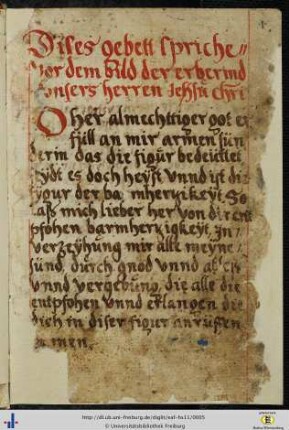 Dises gebett spriche
vor dem bild der erbermd
vnsers herren Jhesu cristi
O her almechtiger got er
füll an mir armen sün
derin das die figur bedeüttet
sydt es doch heyst vnnd ist die
figur der barmhertzikeyt So
laß mich lieber her von dir ent
pfohen barmhertzigkeyt Jn
vertzyhung mir alle meyne
sünd, durch gnod vnnd
vnnd vergebung, die alle die
entpfohen vnnd erlangen die
dich in diser figur anruffen
amen.
http://dl.ub.uni-freiburg.de/diglit/
© Universitätsbibliothek Freiburg